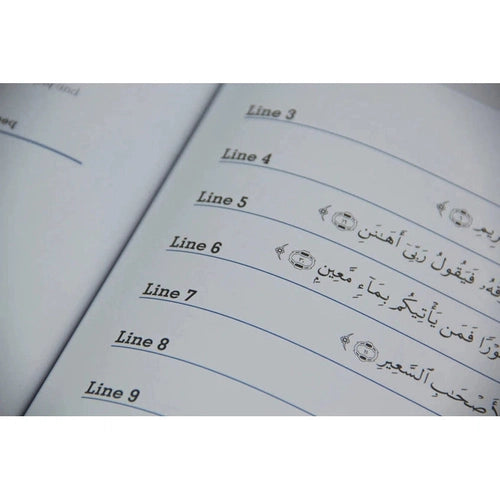 Line 3
Line 4 رِيمِ
Line 5 فَيَقُولُ رَبِّىٓ أَهَـٰنَنِ ﴿١٦﴾
Line 6 فَمَن يَأْتِيكُم بِمَآءٍ مَّعِينٍۭ ﴿٣٠﴾
Line 7 أَصْحَـٰبِ ٱلسَّعِيرِ
Line 8
Line 9